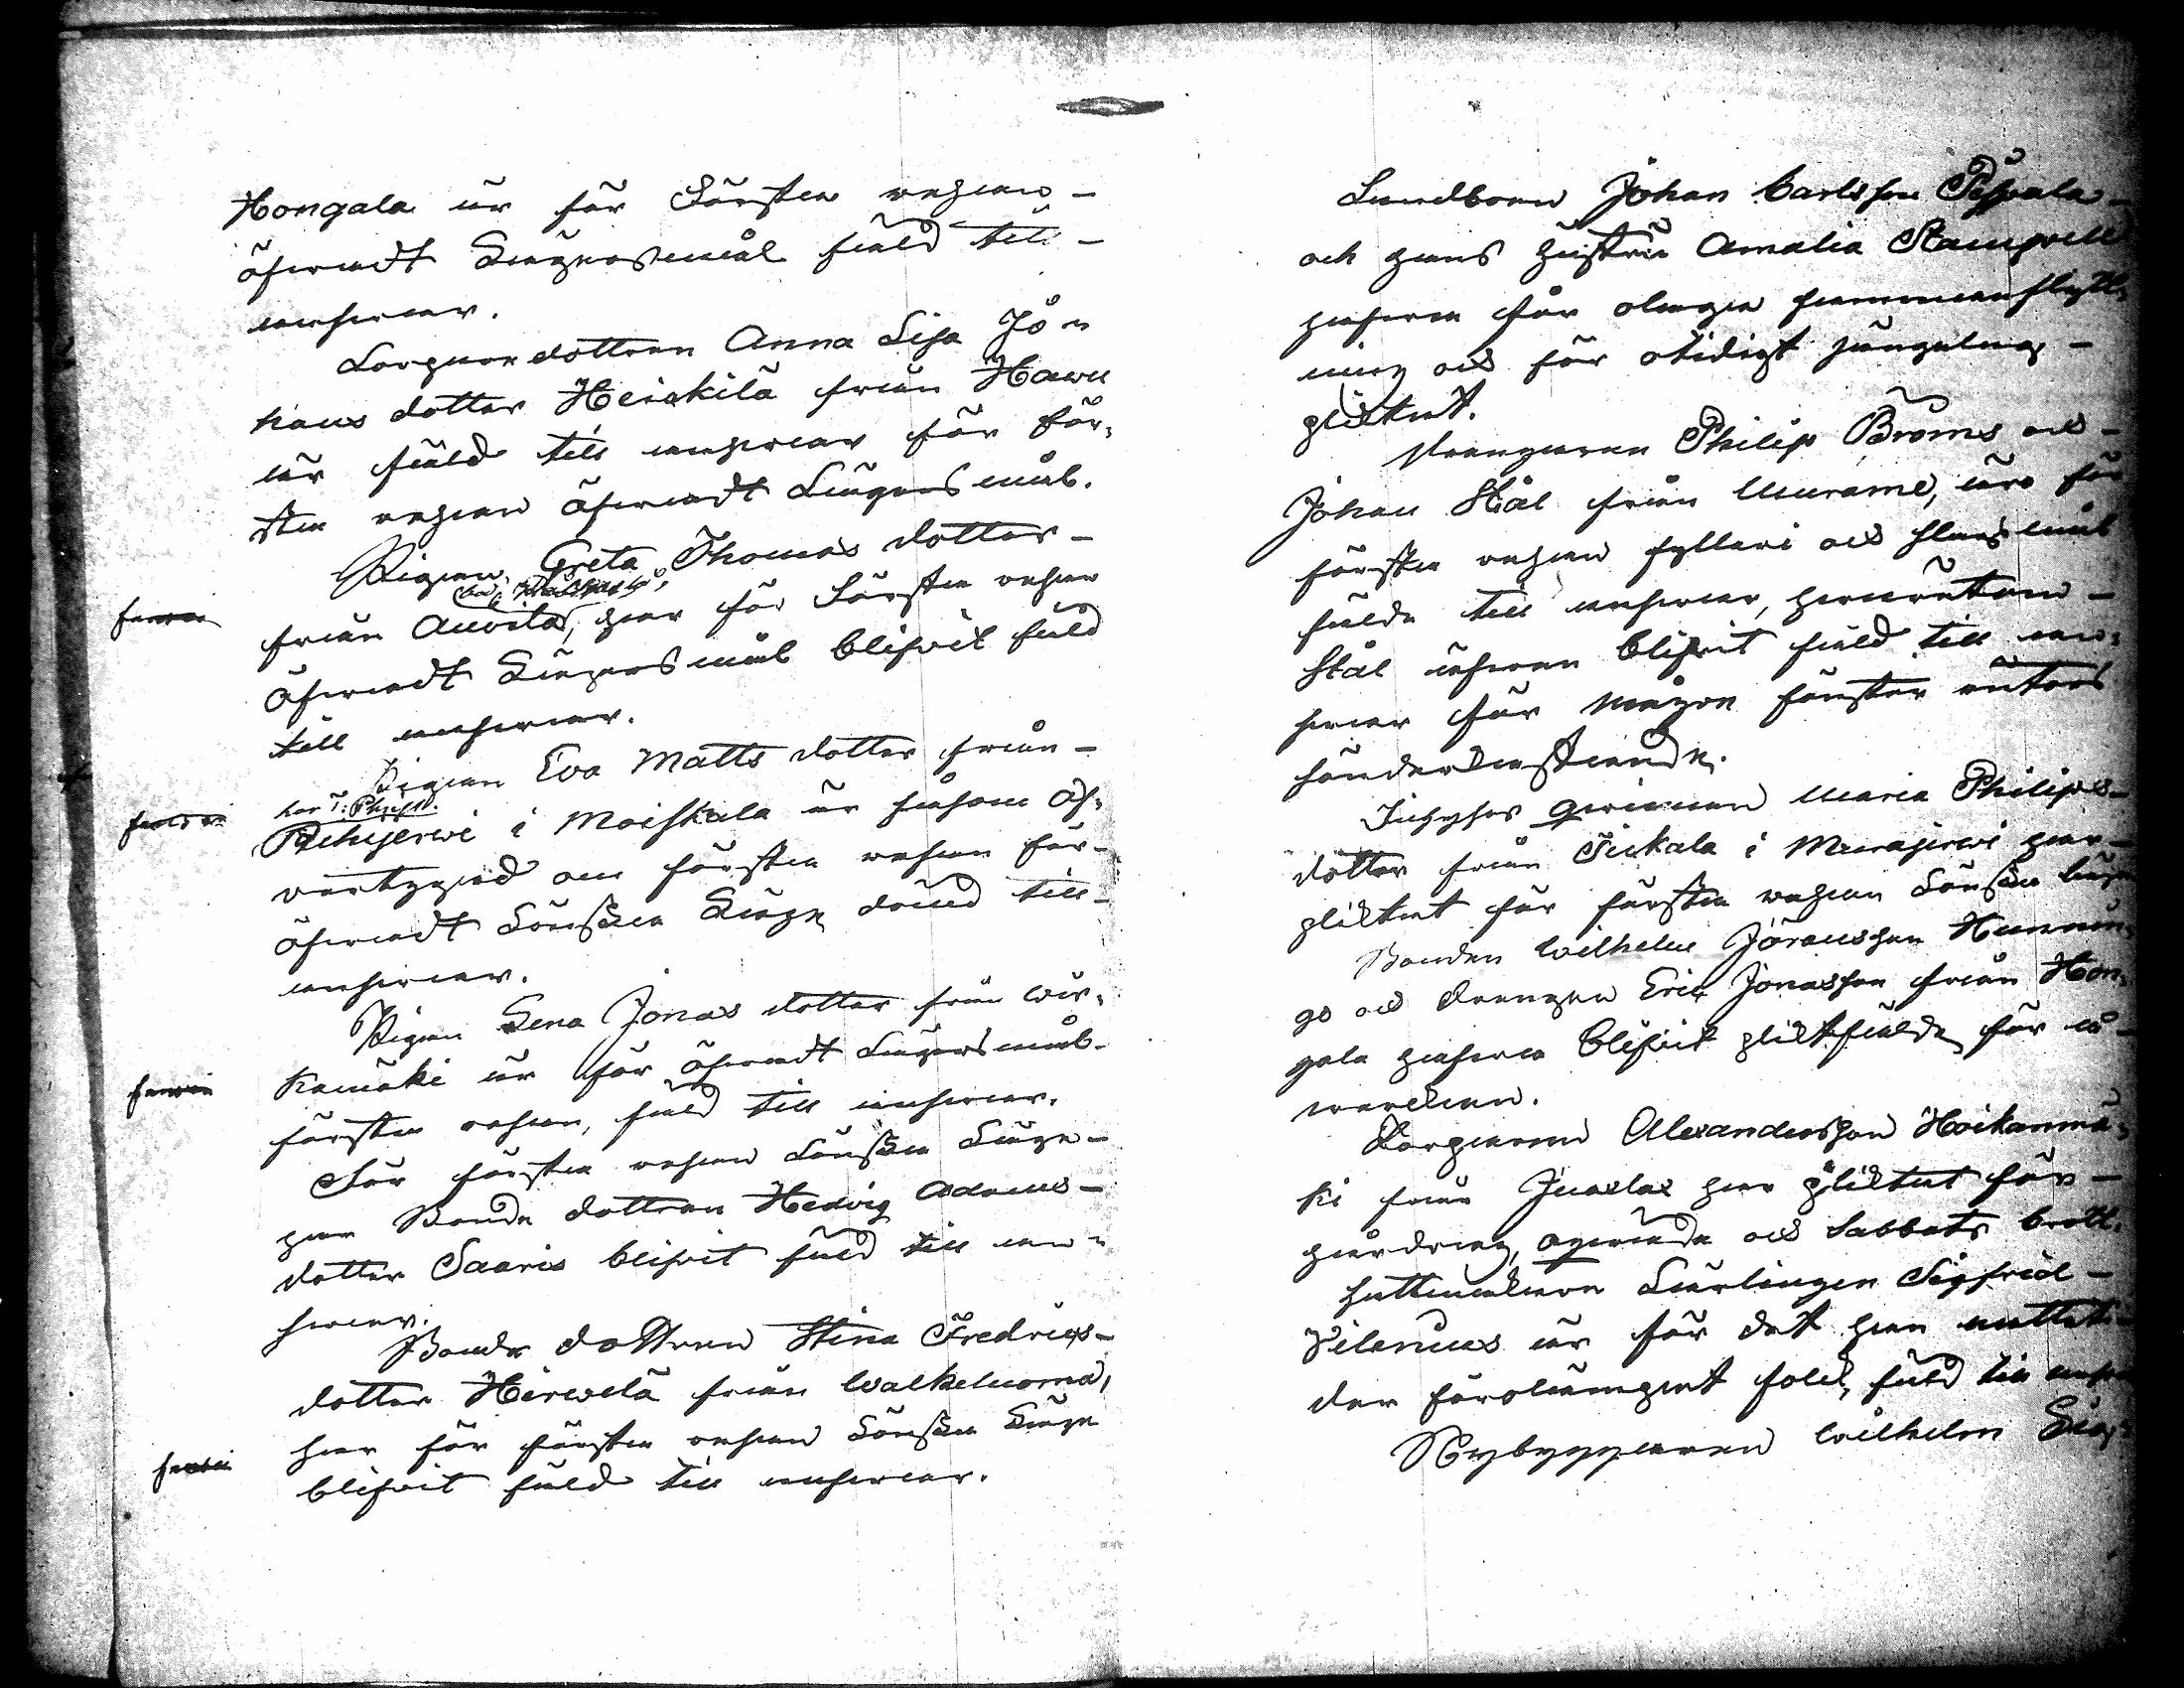 Hongala är för Första resan
öfwadt Lägersmål fäld till
answar.
Torpare dottren Anna Lisa Jo¬
hans dotter Heickilä från Hawu
är fäld till answar för för¬
sta resan öfwadt Lägersmål.
Pigan Greta Thomas dotter
från Auvila, har för Första resan
öfwadt Lägersmål blifwit fäld
till answar.
Pigan Eva Matts dotter från
Pehujerwi i Moiskala är såsom öf¬
wertygad om första resan för¬
öfwadt Lönska Läge dömd till
answar.
Pigan Lena Jonas dotter från Wir¬
kamäki är för öfwadt Lägersmål
första resan, fäld till answar.
För första resan Lönska Läge
har Bonde dottren Hedvig Adams
dotter Saaris blifwit fäld till an¬
swar.
Bonde dottren Stina Fredrics
dotter Hirwelä från Walkeluoma,
har för första resan Lönska Läge
blifwit fäld till answar.
Landboen Johan Carlsson Pispala
och hans hustru Amalia Stampvill
hafwa för olaga sammanflytt¬
ning och för otidigt sängelag
pliktat.
Drengarne Philip Broms och
Johan Stål från Murame, äro för
första resan fylleri och slagsmål
fälde till answar, hwarutom
Stål äfwen blifwit fäld till an¬
swar för någon fönster rutas
sönderkastande.
Inhyses qwinnan Maria Philips
dotter från Tiukala i Murajerwi har
pliktat för första resan Lönska Läge
Bonden Wilhelm Jöransson Hunnin¬
go och Drengen Eric Jonasson från Hon¬
gala hafwa blifwit pliktfälde för å¬
werkan.
Torparen Alexandersson Hoikanmä¬
ki från Juaslax har pliktat för
hårdrag, oqwäde och Sabbats brott.
Hattmakare Lärlingen Sigfrid
Vilenius är för det han nattetid
der förolämpat folk, fäld till answar
Nybyggaren Wilhelm